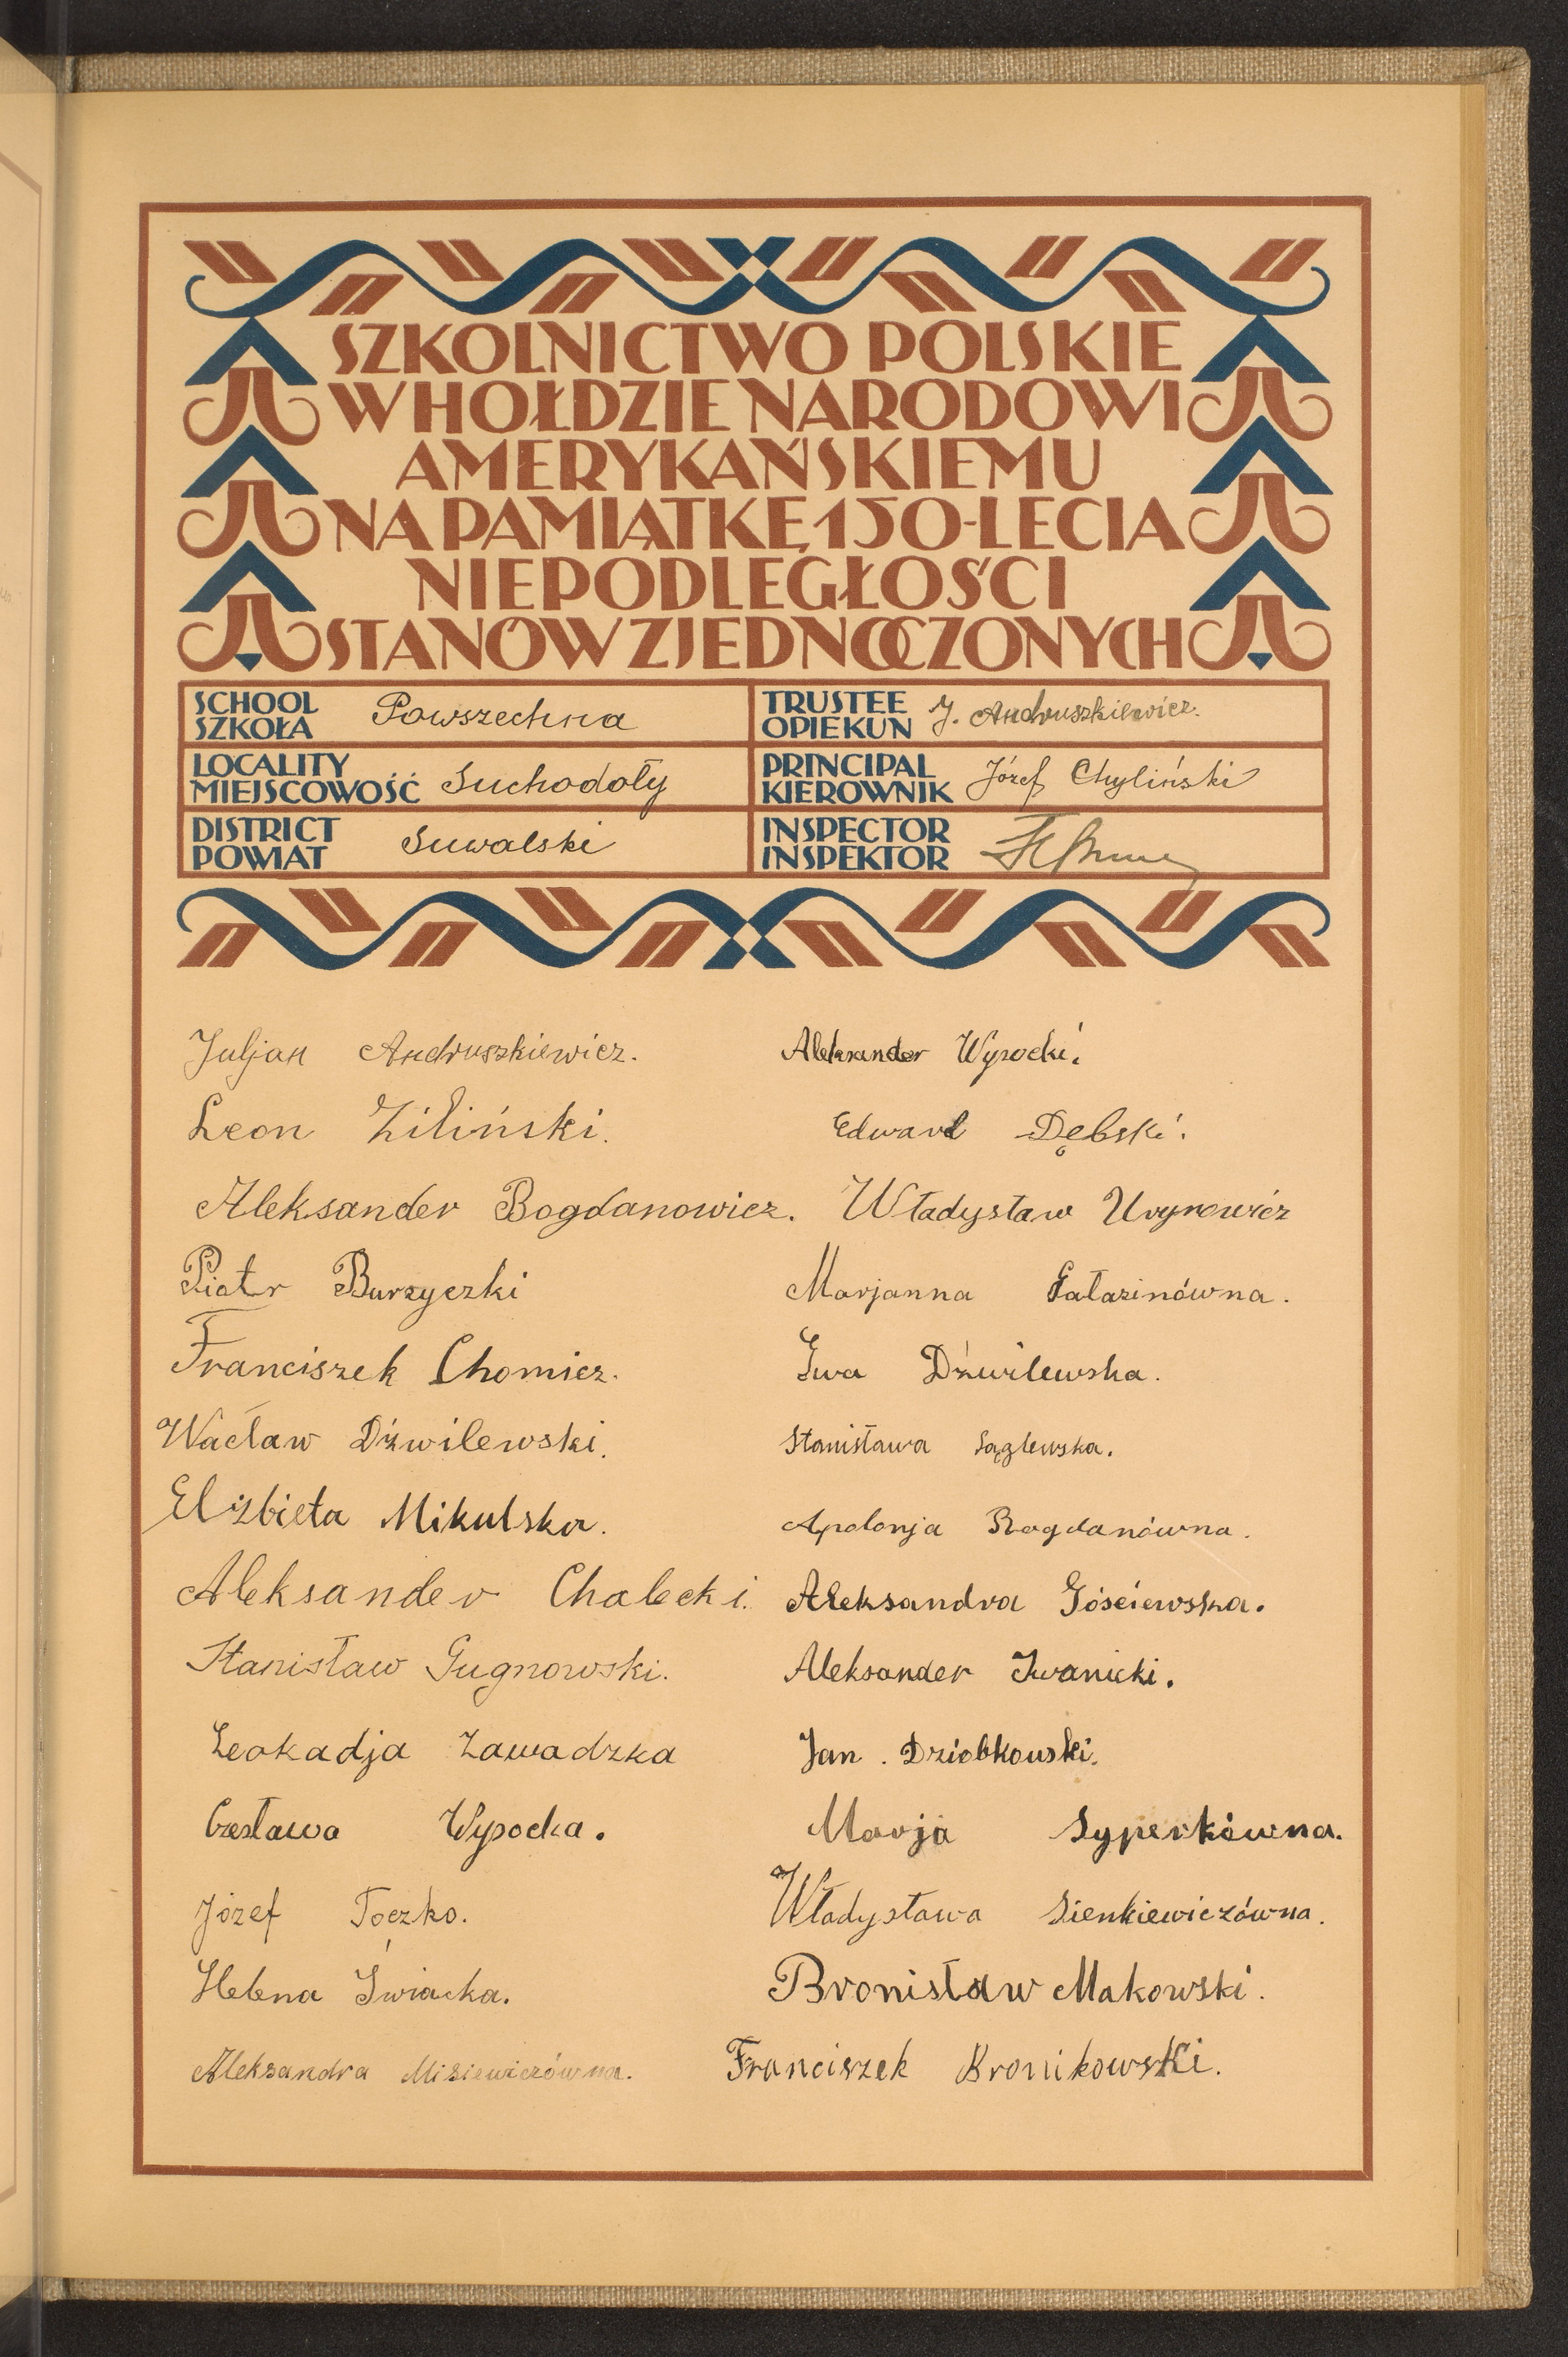 SZKOLNICTWO POLSKIE
W HOŁDZIE NARODOWI
AMERYKAŃSKIEMU
NA PAMIĄTKĘ 150-LECIA
NIEPODLEGŁOŚCI
STANÓW ZJEDNOCZONYCH
SCHOOL
SZKOŁA Powszechna
LOCALITY
MIEJSCOWOŚĆ Suchodoły
DISTRICT
POWIAT Suwalski
TRUSTEE
OPIEKUN J. Andruszkiewicz.
PRINCIPAL
KIEROWNIK Józef Chyliński
INSPECTOR
INSPEKTOR
Juljan Andruszkiewicz.
Leon Ziliński.
Aleksander Bogdanowicz.
Piotr Burzyczki
Franciszek Chomicz.
Wacław Dźwilewski.
Elżbieta Mikulska.
Aleksander Chalecki.
Stanisław Gugnowski.
Leokadja Zawadzka
Czesława Wysocka.
Józef Toczko.
Helena Świacka.
Aleksandra Misiewiczówna.
Aleksander Wysocki.
Edward Dębski.
Władysław Urynowicz
Marjanna Pałazinówna.
Ewa Dźwilewska.
Stanisława
Apolonja Bogdanówna.
Aleksandra Gościewska.
Aleksander Iwanicki.
Jan. Dziobkowski.
Marja Syperkówna.
Władysława Sienkiewiczówna.
Bronisław Makowski.
Franciszek Bronikowski.